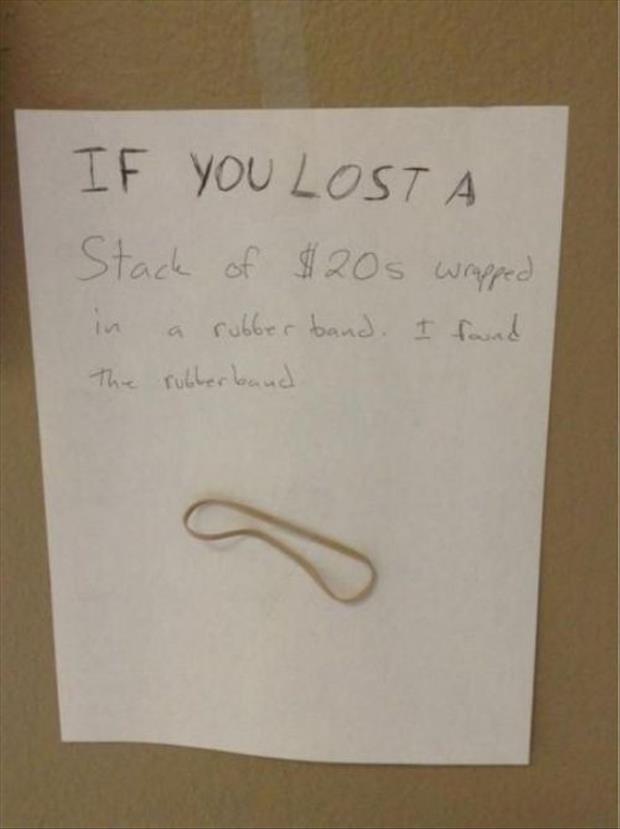 IF YOU LOST A
Stack of $20s wrapped
in a rubber band. I found
the rubberband